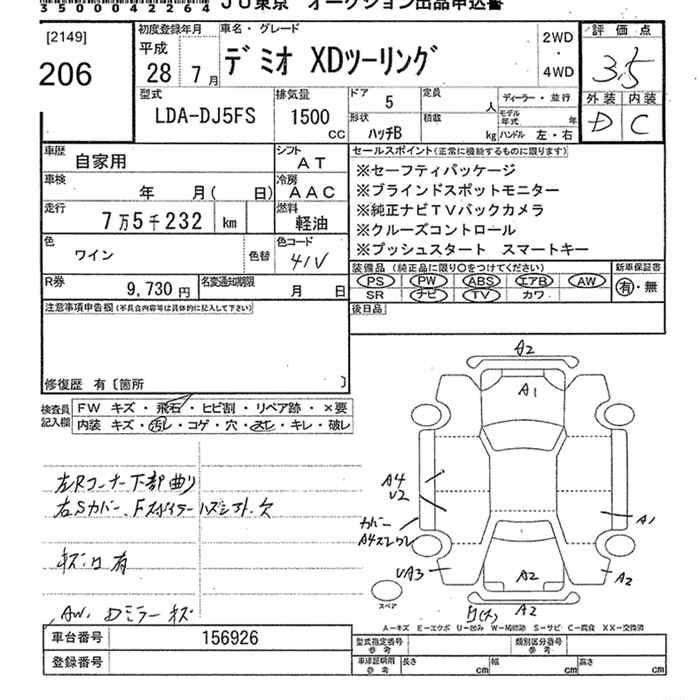 350004226​4 JU東京 オークション出品申込書
[2149]
206
初度登録年月
平成
28 年 7 月
車名・グレード
デミオ XDツーリング
2WD
・
4WD
評価点
3.5
外装 内装
D C
型式
LDA-DJ5FS
排気量
1500
CC
ドア 5
形状 ハッチB
定員 人
積載 kg
ディーラー・並行
モデル年式 年
ハンドル 左・右
車歴 自家用
シフト AT
車検 年 月( 日)
冷房 AAC
走行 7万5千232 km
燃料 軽油
色 ワイン
色替
色コード 41V
R券 9,730 円
名変通知期限 月 日
セールスポイント(正常に機能するものに限ります)
※セーフティパッケージ
※ブラインドスポットモニター
※純正ナビTVバックカメラ
※クルーズコントロール
※プッシュスタート スマートキー
装備品(純正品に限り○をつけてください)
PS PW ABS エアB AW
SR ナビ TV カワ
新車保証書
有・無
後日品
注意事項申告欄(不具合内容等は具体的に記入して下さい)
修復歴 有〔箇所 〕
検査員記入欄
FW キズ・飛石・ヒビ割・リペア跡・×要
内装 キズ・汚レ・コゲ・穴・スレ・キレ・破レ
左Rコーナー下部曲り
右Sカバー、Fスポイラーハズシオト.欠
キズ凹有
AW. Dミラーキズ
A2
A1
A4
U2
カバー
A4スレワレ
UA3
A2
A1
A2
A2
スペア
A-キズ E-エクボ U-凹み W-補修跡 S-サビ C-腐食 XX-交換済
車台番号 156926
登録番号
型式指定番号 参考
類別区分番号 参考
車庫証明用 参考
長さ cm
幅 cm
高さ cm